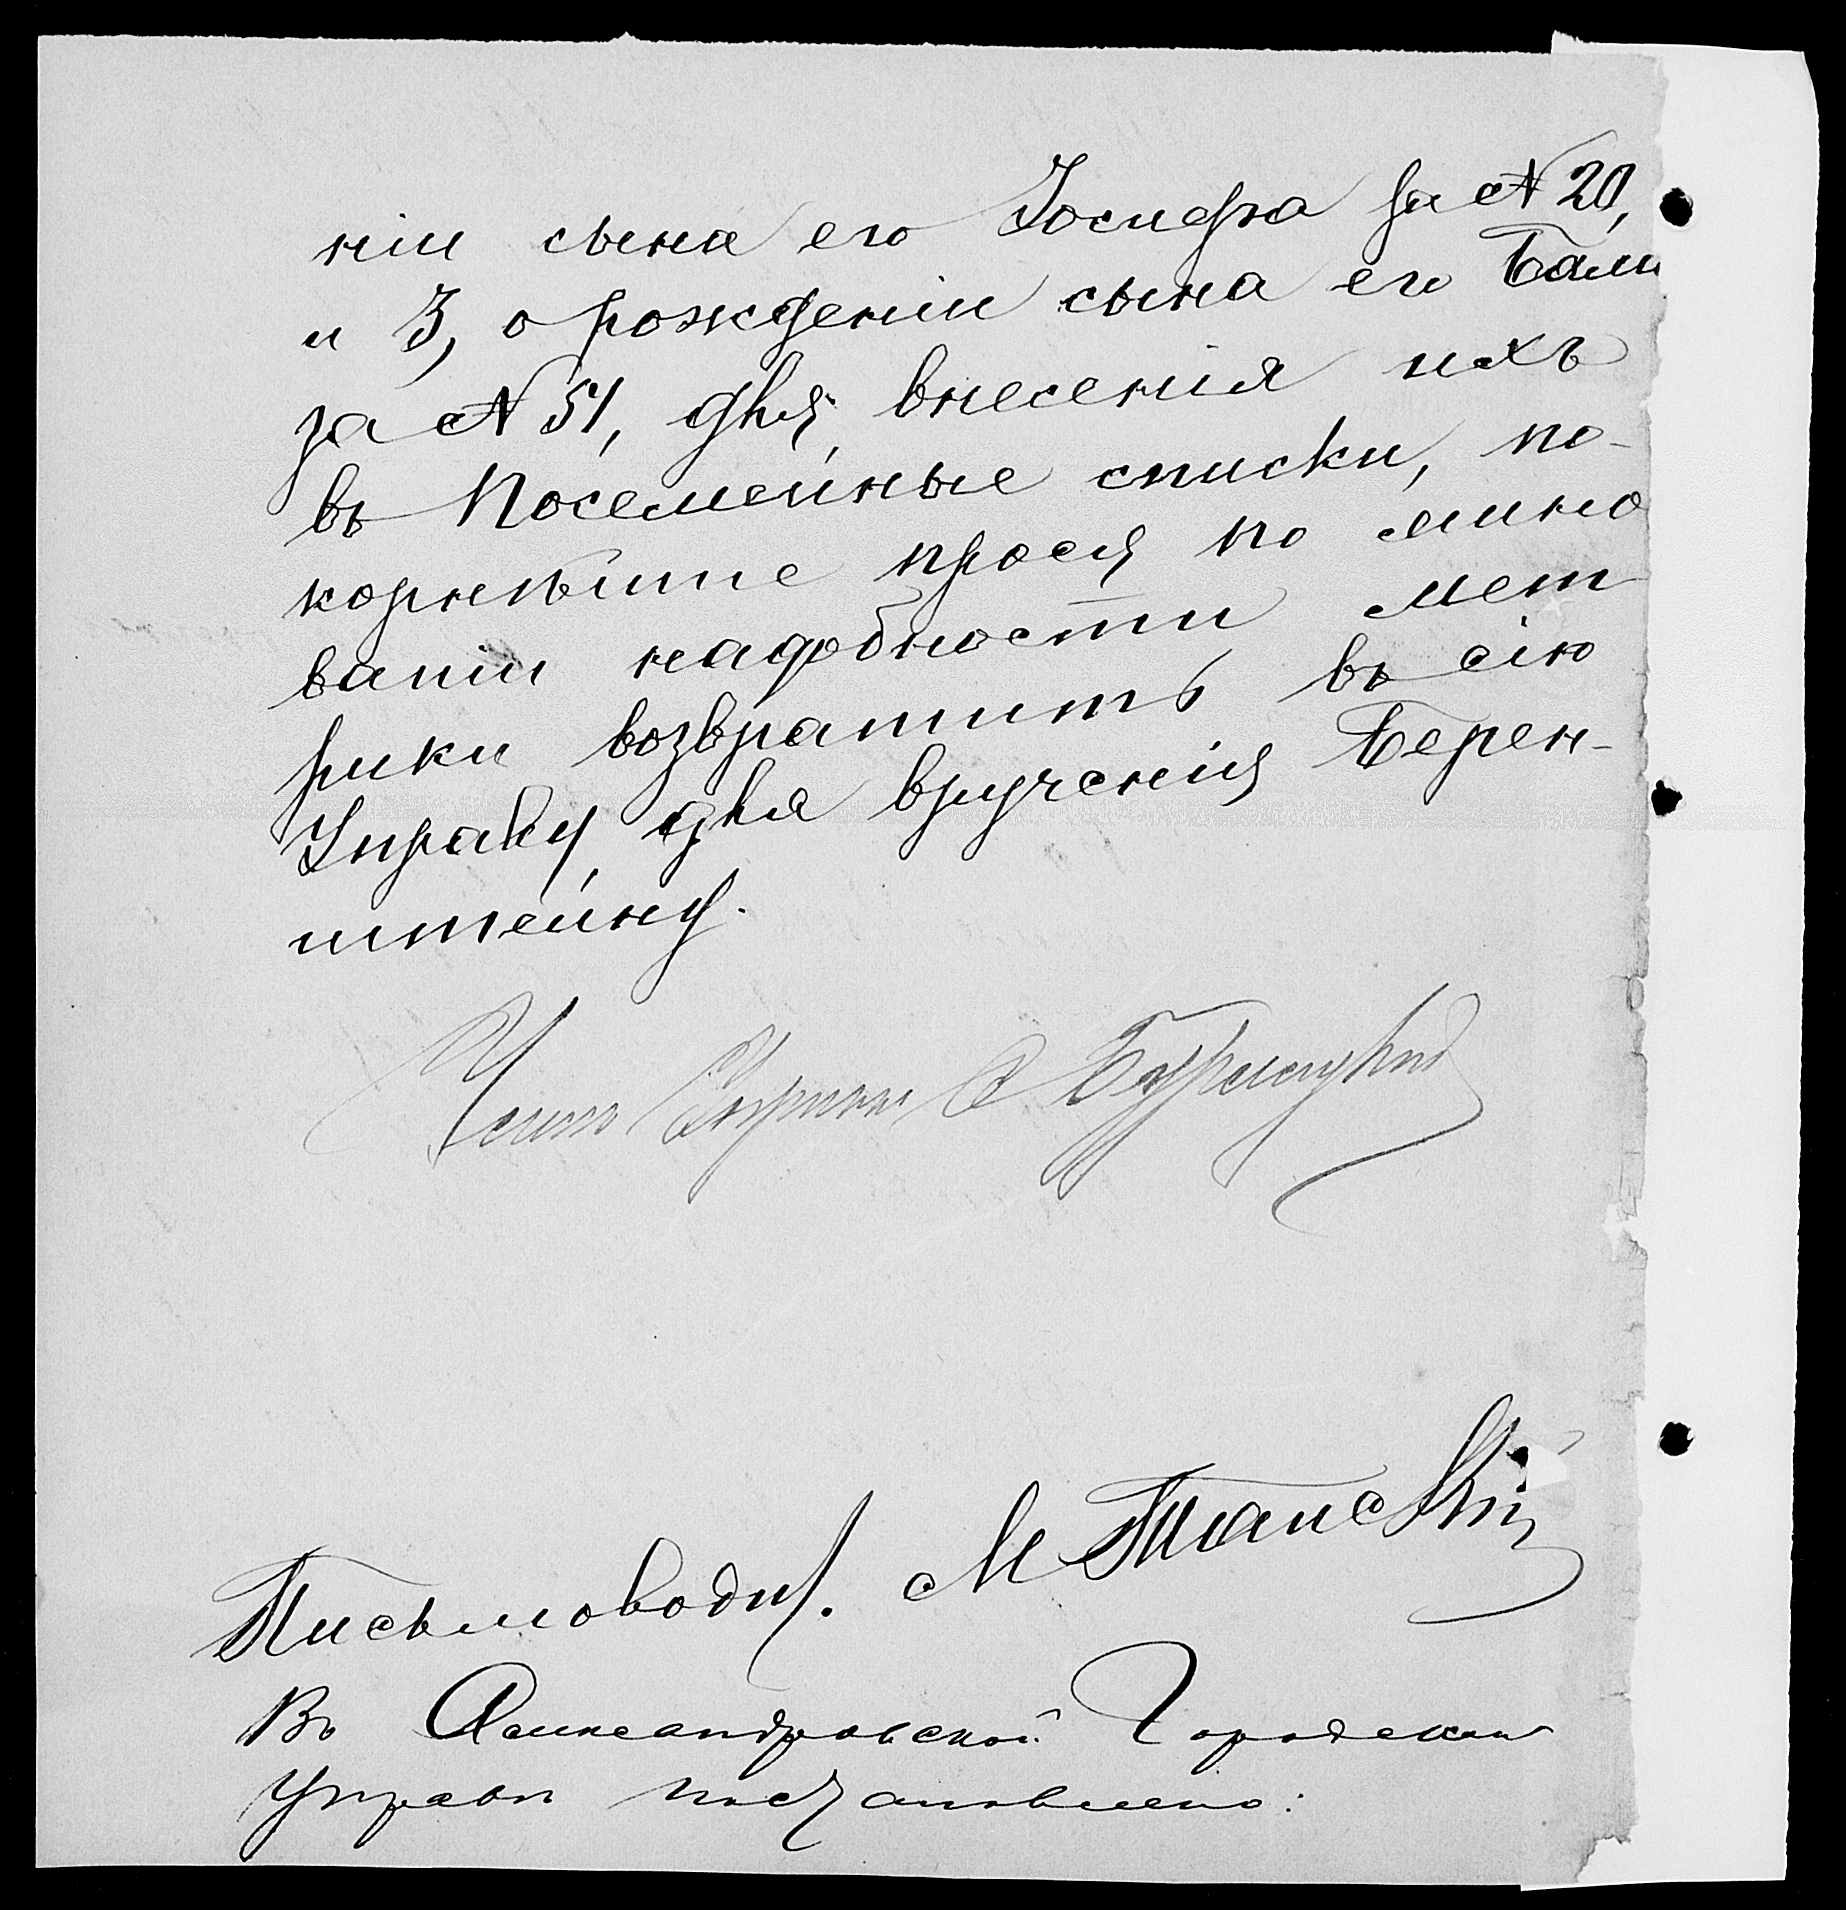 ніи сына его Іосифа за № 20,
и 3, о рожденіи сына его
за № 51, для внесенія ихъ
въ посемейные списки, по-
корнѣйше прося по мино
ваніи надобности мет
рики возвратить въ сію
Управу для врученія Берен-
штейну.
Членъ Управы
Письмоводит. М
Въ Александровской Городской
Управѣ постановлено: